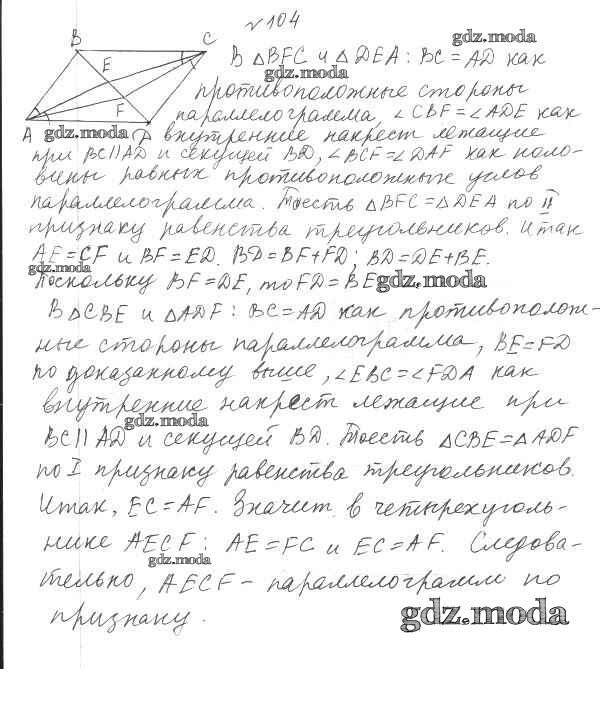 № 104
B C
gdz.moda
В △BFC и △DEA: BC = AD как
E
gdz.moda
противоположные стороны
F
параллелограмма, ∠CBF = ∠ADE как
A gdz.moda D внутренние накрест лежащие
при BC || AD и секущей BD, ∠BCF = ∠DAF как поло-
вины равных противоположных углов
параллелограмма. То есть △BFC = △DEA по II
признаку равенства треугольников. Итак
AE = CF и BF = ED. BD = BF + FD; BD = DE + BE.
gdz.moda
Поскольку BF = DE, то FD = BE gdz.moda
В △CBE и △ADF: BC = AD как противополож-
ные стороны параллелограмма, BE = FD
по доказанному выше, ∠EBC = ∠FDA как
внутренние накрест лежащие при
gdz.moda
BC || AD и секущей BD. То есть △CBE = △ADF
по I признаку равенства треугольников.
Итак, EC = AF. Значит в четырехуголь-
нике AECF: AE = FC и EC = AF. Следова-
gdz.moda
тельно, AECF - параллелограмм по
признаку.
gdz.moda